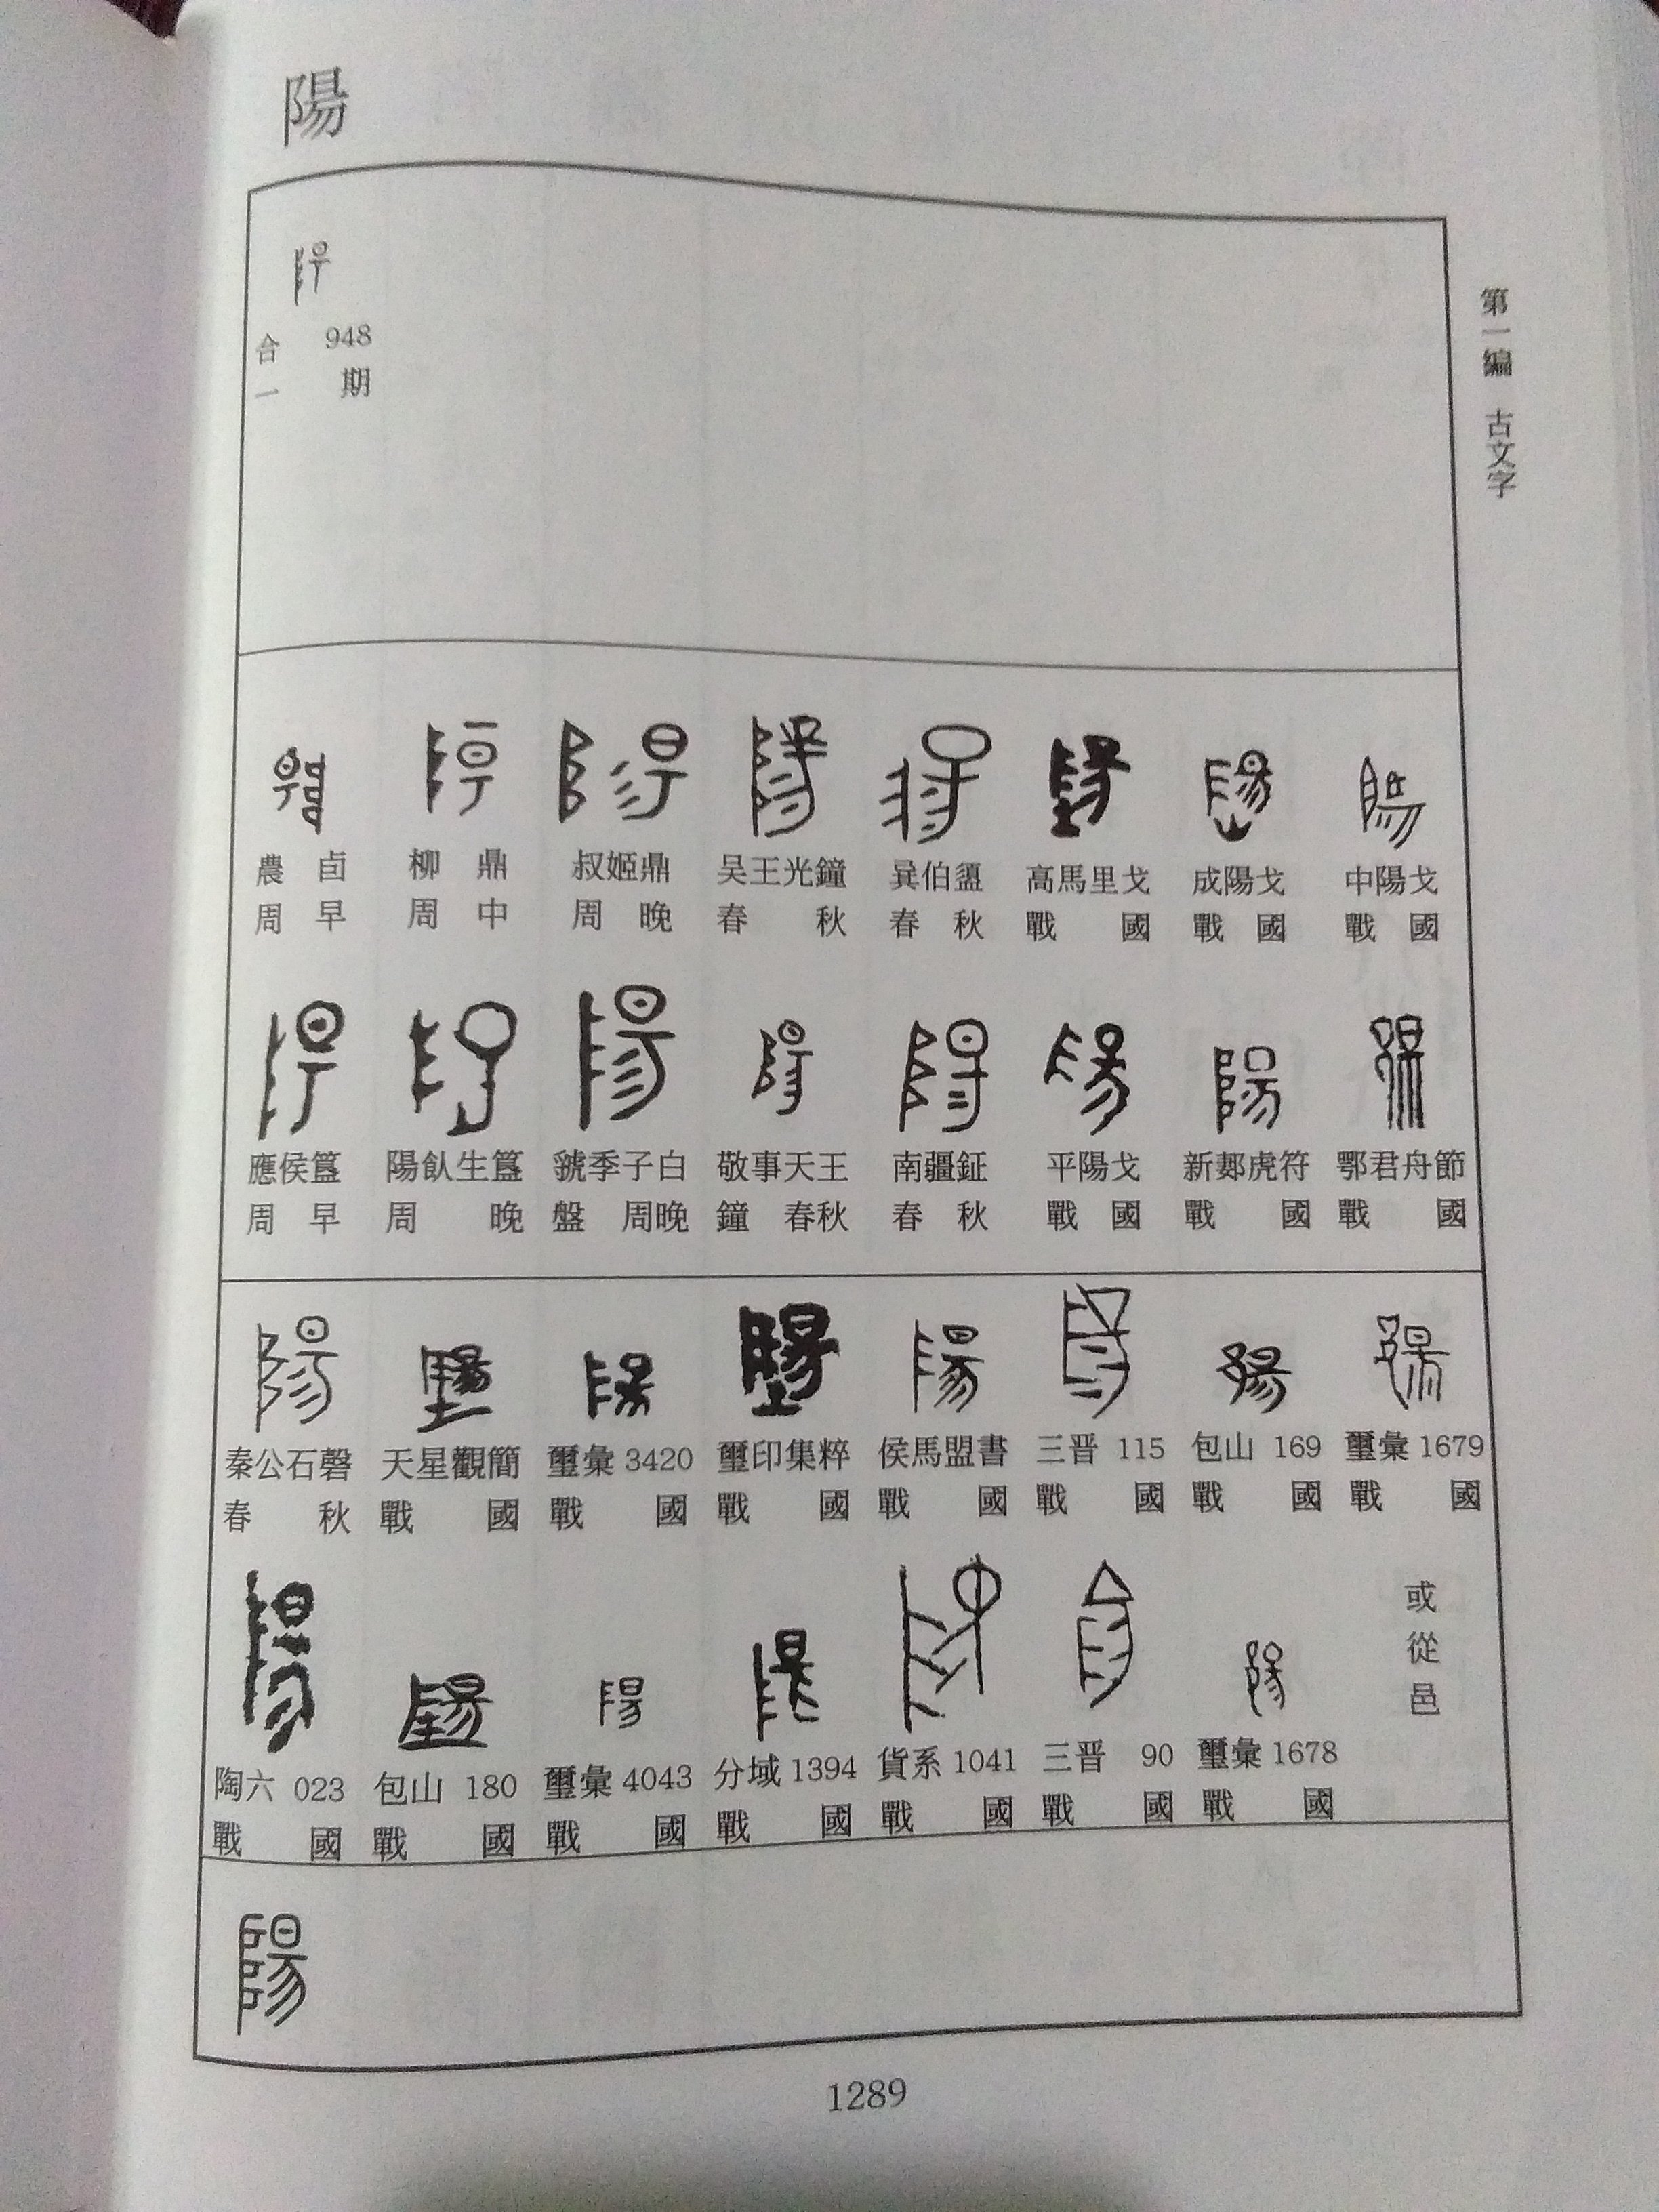 陽
第一編 古文字
合 948
一期
農卣 柳鼎 叔姬鼎 吴王光鐘 㠱伯盨 高馬里戈 成陽戈 中陽戈
周早 周中 周晚 春秋 春秋 戰國 戰國 戰國
應侯簋 陽飤生簋 虢季子白 敬事天王 南疆鉦 平陽戈 新郪虎符 鄂君舟節
周早 周晚 盤 周晚 鐘 春秋 春秋 戰國 戰國 戰國
秦公石磬 天星觀簡 璽彙 3420 璽印集粹 侯馬盟書 三晋 115 包山 169 璽彙 1679
春秋 戰國 戰國 戰國 戰國 戰國 戰國 戰國
或從邑
陶六 023 包山 180 璽彙 4043 分域 1394 貨系 1041 三晋 90 璽彙 1678
戰國 戰國 戰國 戰國 戰國 戰國 戰國
陽
1289